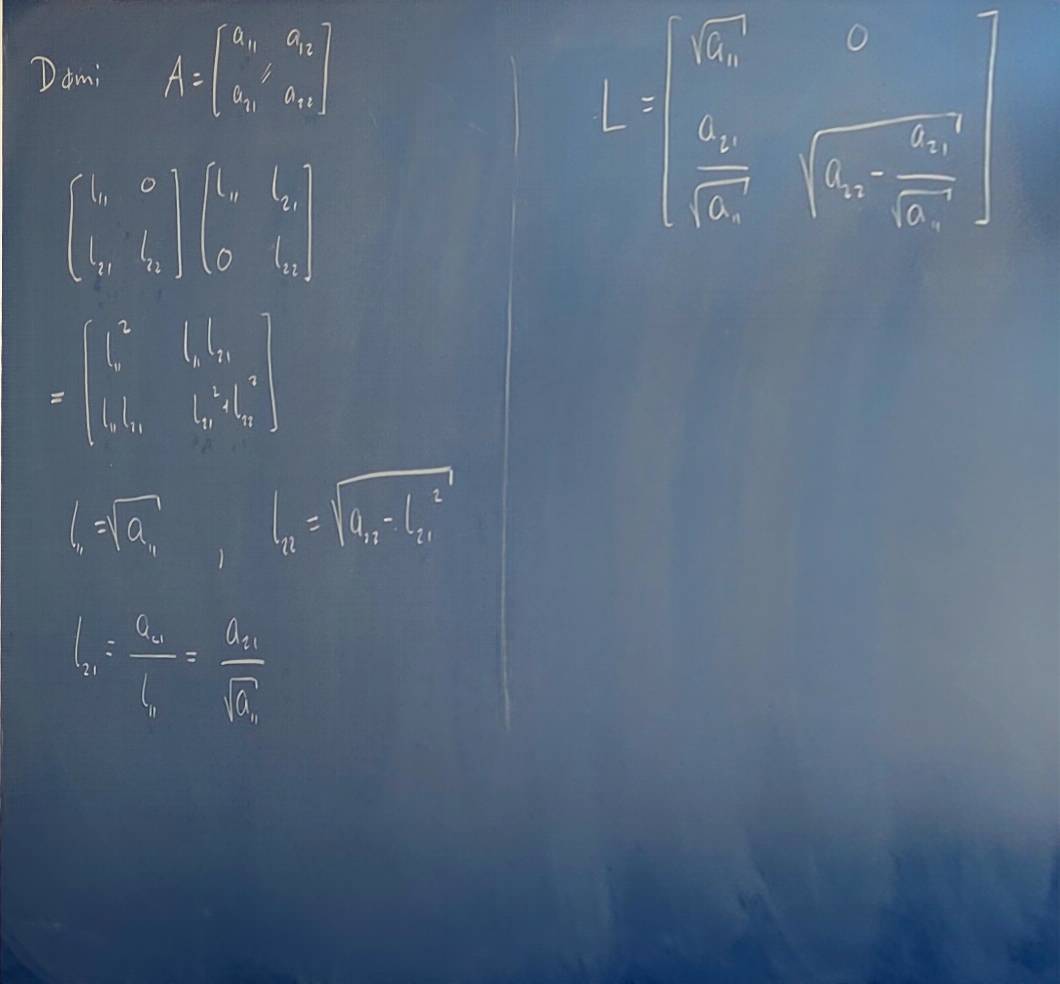 Dami A = [ a₁₁ a₁₂
a₂₁ a₂₂ ]
[ l₁₁ 0 ] [ l₁₁ l₂₁ ]
[ l₂₁ l₂₂ ] [ 0 l₂₂ ]
= [ l₁₁² l₁₁l₂₁
l₁₁l₂₁ l₂₁² + l₂₂² ]
l₁₁ = √a₁₁ , l₂₂ = √(a₂₂ - l₂₁²)
l₂₁ = a₂₁/l₁₁ = a₂₁/√a₁₁
L = [ √a₁₁ 0
a₂₁/√a₁₁ √(a₂₂ - a₂₁/√a₁₁) ]